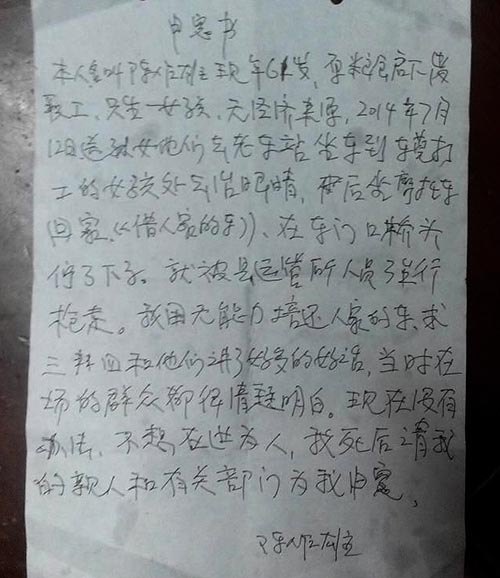 申冤书
本人名叫陈 现年61岁,原粮食局下岗
职工、只生一女孩,无经济来原,2014年7月
12日送 女他们去老车站坐车到东莞打
工的女孩处去治眼睛,然后坐摩托车
回家,《(借人家的车)》、在车门口桥头
停了下子,就被县运管所人员强行
抢走。我因无能力赔还人家的车,求
三拜四和他们讲了好多的好话,当时在
场的群众都很清楚明白。现在没有
办法,不想在世为人,我死后请我
的亲人和有关部门为我申冤,
陈